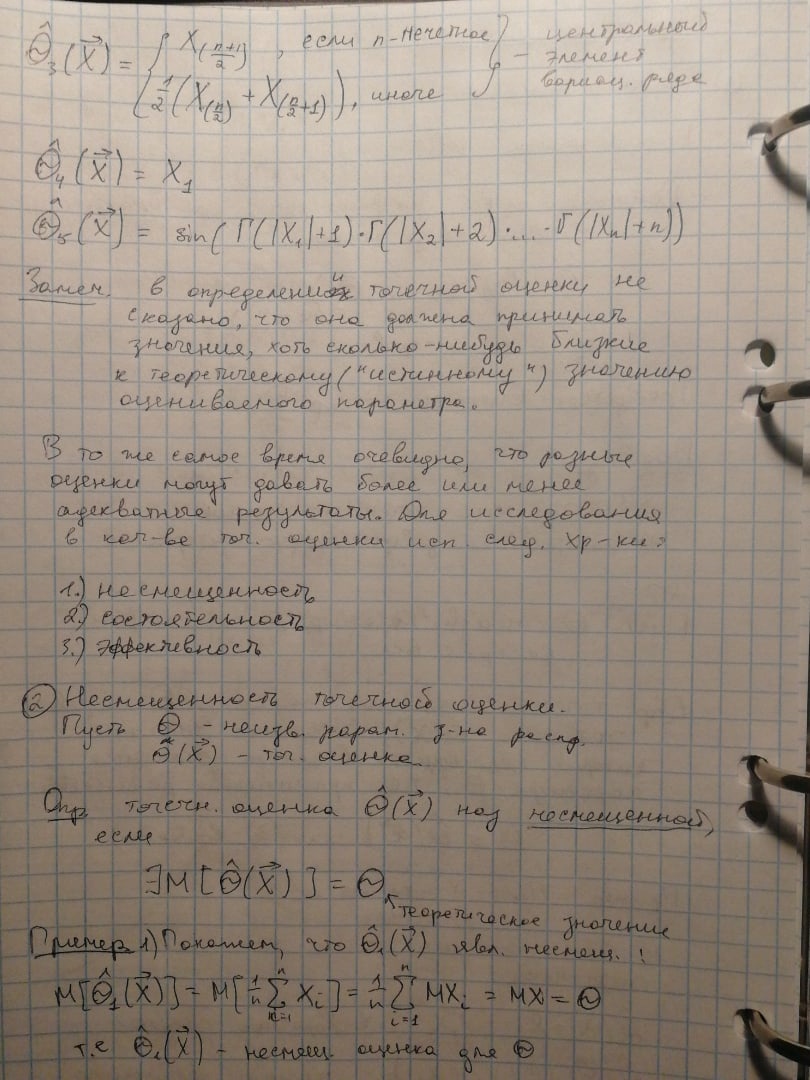 Θ̂₃(X⃗) = { X₍(n+1)/2₎, если n-нечетное } — центральный элемент вариац. ряда
{ 1/2(X₍n/2₎ + X₍n/2+1₎), иначе
Θ̂₄(X⃗) = X₁
Θ̂₅(X⃗) = sin(Γ(|X₁|+1)·Γ(|X₂|+2)·...·Γ(|Xₙ|+n))
Замеч. в определении точечной оценки не
сказано, что она должена принимать
значения, хоть сколько-нибудь близкие
к теоретическому ("истинному") значению
оцениваемого параметра.
В то же самое время очевидно, что разные
оценки могут давать более или менее
адекватные результаты. Для исследования
в кач-ве точ. оценки исп. след. хр-ки:
1.) несмещенность
2.) состоятельность
3.) эффективность
② Несмещенность точечной оценки.
Пусть Θ - неизв. парам. з-на распд.
Θ̂(X⃗) - точ. оценка
Опр точечн. оценка Θ̂(X⃗) наз несмещенной,
если
∃M[Θ̂(X⃗)] = Θ
теоретическое значение
Пример 1) Покажем, что Θ̂₁(X⃗) явл. несмещ.:
M[Θ̂₁(X⃗)] = M[1/n ∑ Xᵢ] = 1/n ∑ⁿᵢ₌₁ MXᵢ = MX = Θ
т.е Θ̂₁(X⃗) - несмещ. оценка для Θ